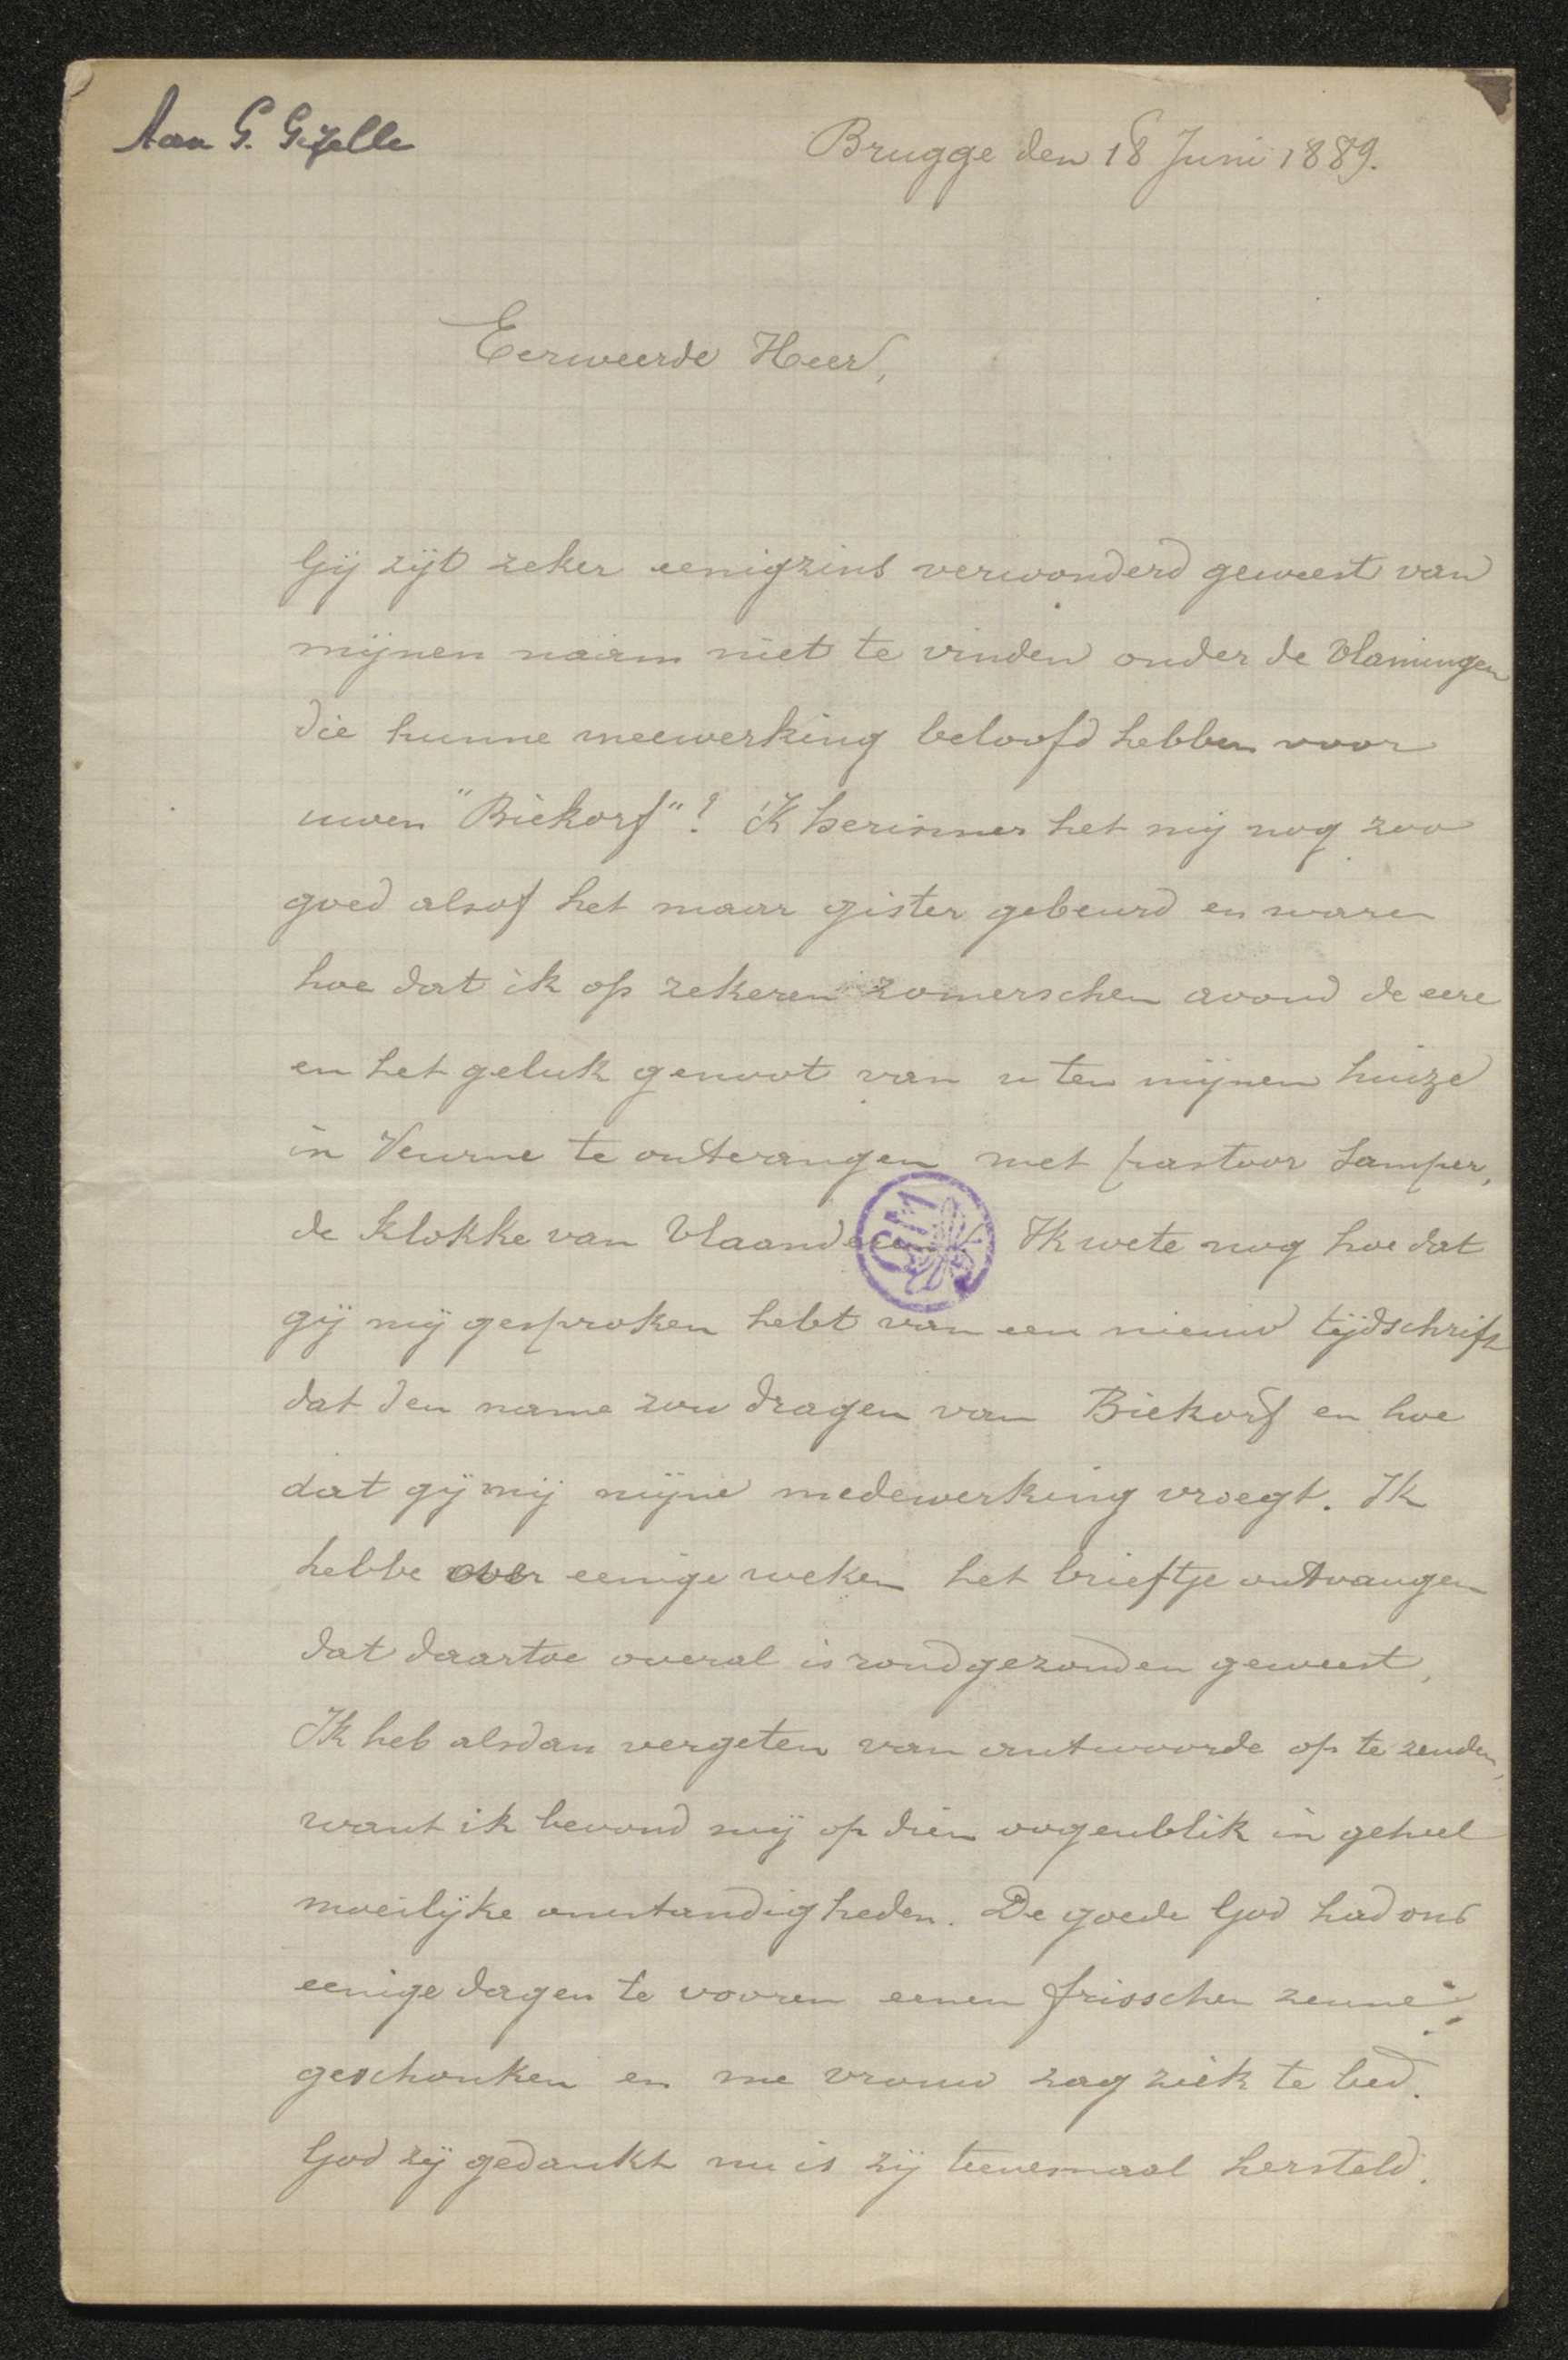 Aan G. Gezelle
Brugge den 18 Juni 1889.
Eerweerde Heer,
Gij zijt zeker eenigzins verwonderd geweest van
mijnen naam niet te vinden onder de Vlamingen
die hunne meewerking beloofd hebben voor
uwen "Biekorf"? 'K herinner het mij nog zoo
goed alsof het maar gister gebeurd en ware
hoe dat ik op zekeren zomerschen avond de eere
en het geluk genoot van u ten mijnen huize
in Veurne te ontvangen met pastoor Samper,
de klokke van Vlaanderen! Ik wete nog hoe dat
gij mij gesproken hebt van een nieuw tijdschrift
dat den name zou dragen van Biekorf en hoe
dat gij mij mijne medewerking vroegt. Ik
hebbe over eenige weken het brieftje ontvangen
dat daartoe overal is rondgezonden geweest,
Ik heb alsdan vergeten van antwoorde op te zenden,
want ik bevond mij op dien oogenblik in geheel
moeilijke omstandigheden. De goede God had ons
eenige dagen te vooren eenen frisschen zeune
geschonken en me vrouw zag ziek te bed.
God zij gedankt nu is zij teenemaal hersteld.